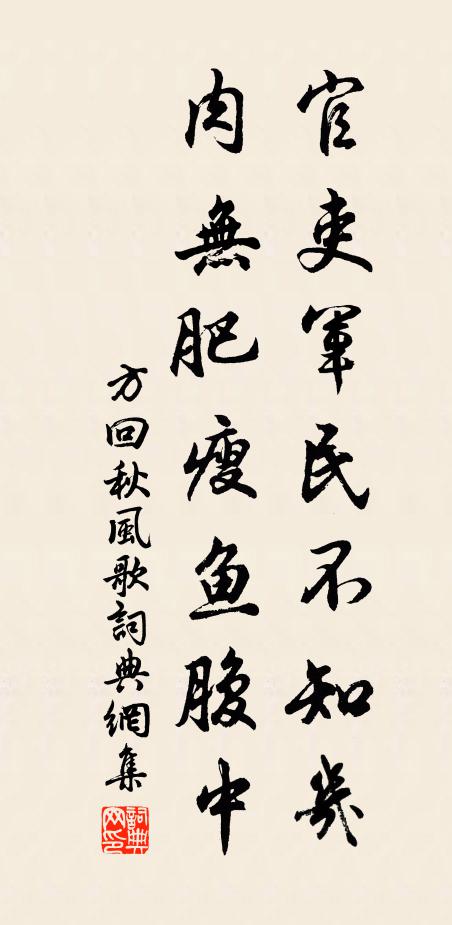 官吏軍民不知幾
肉無肥瘦鱼腹中
方回秋風歌詞典網集
詞典网印